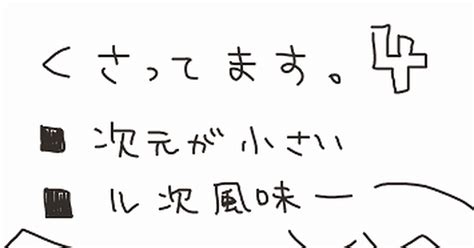 くさってます。
■ 次元が小さい
■ ル次風味ー